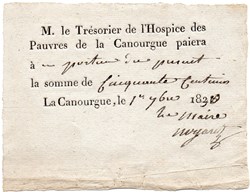 M. le Trésorier de l'Hospice des
Pauvres de la Canourgue paiera
à un porteur du présent
la somme de Cinquante Centimes
La Canourgue, le 1er 9bre 183
Le Maire